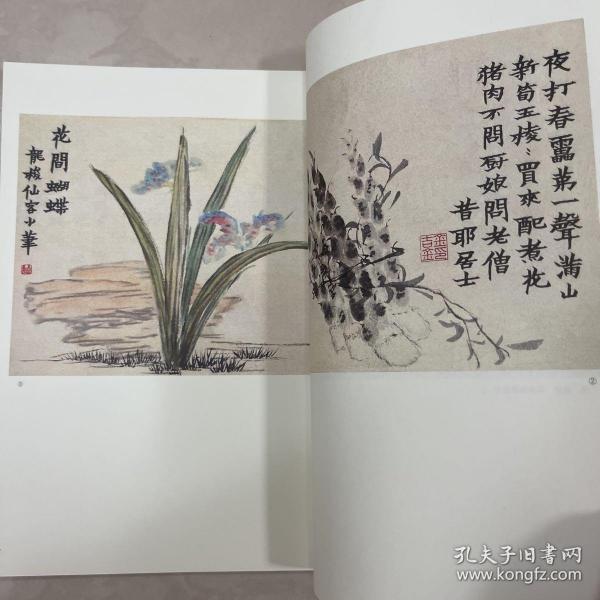 花間蝴蝶
龍梭仙客小筆
夜打春靁第一聲滿山
新筍玉棱〻買來配煮花
猪肉不問厨娘問老僧
昔耶居士
②
孔夫子旧書网
www.kongfz.com